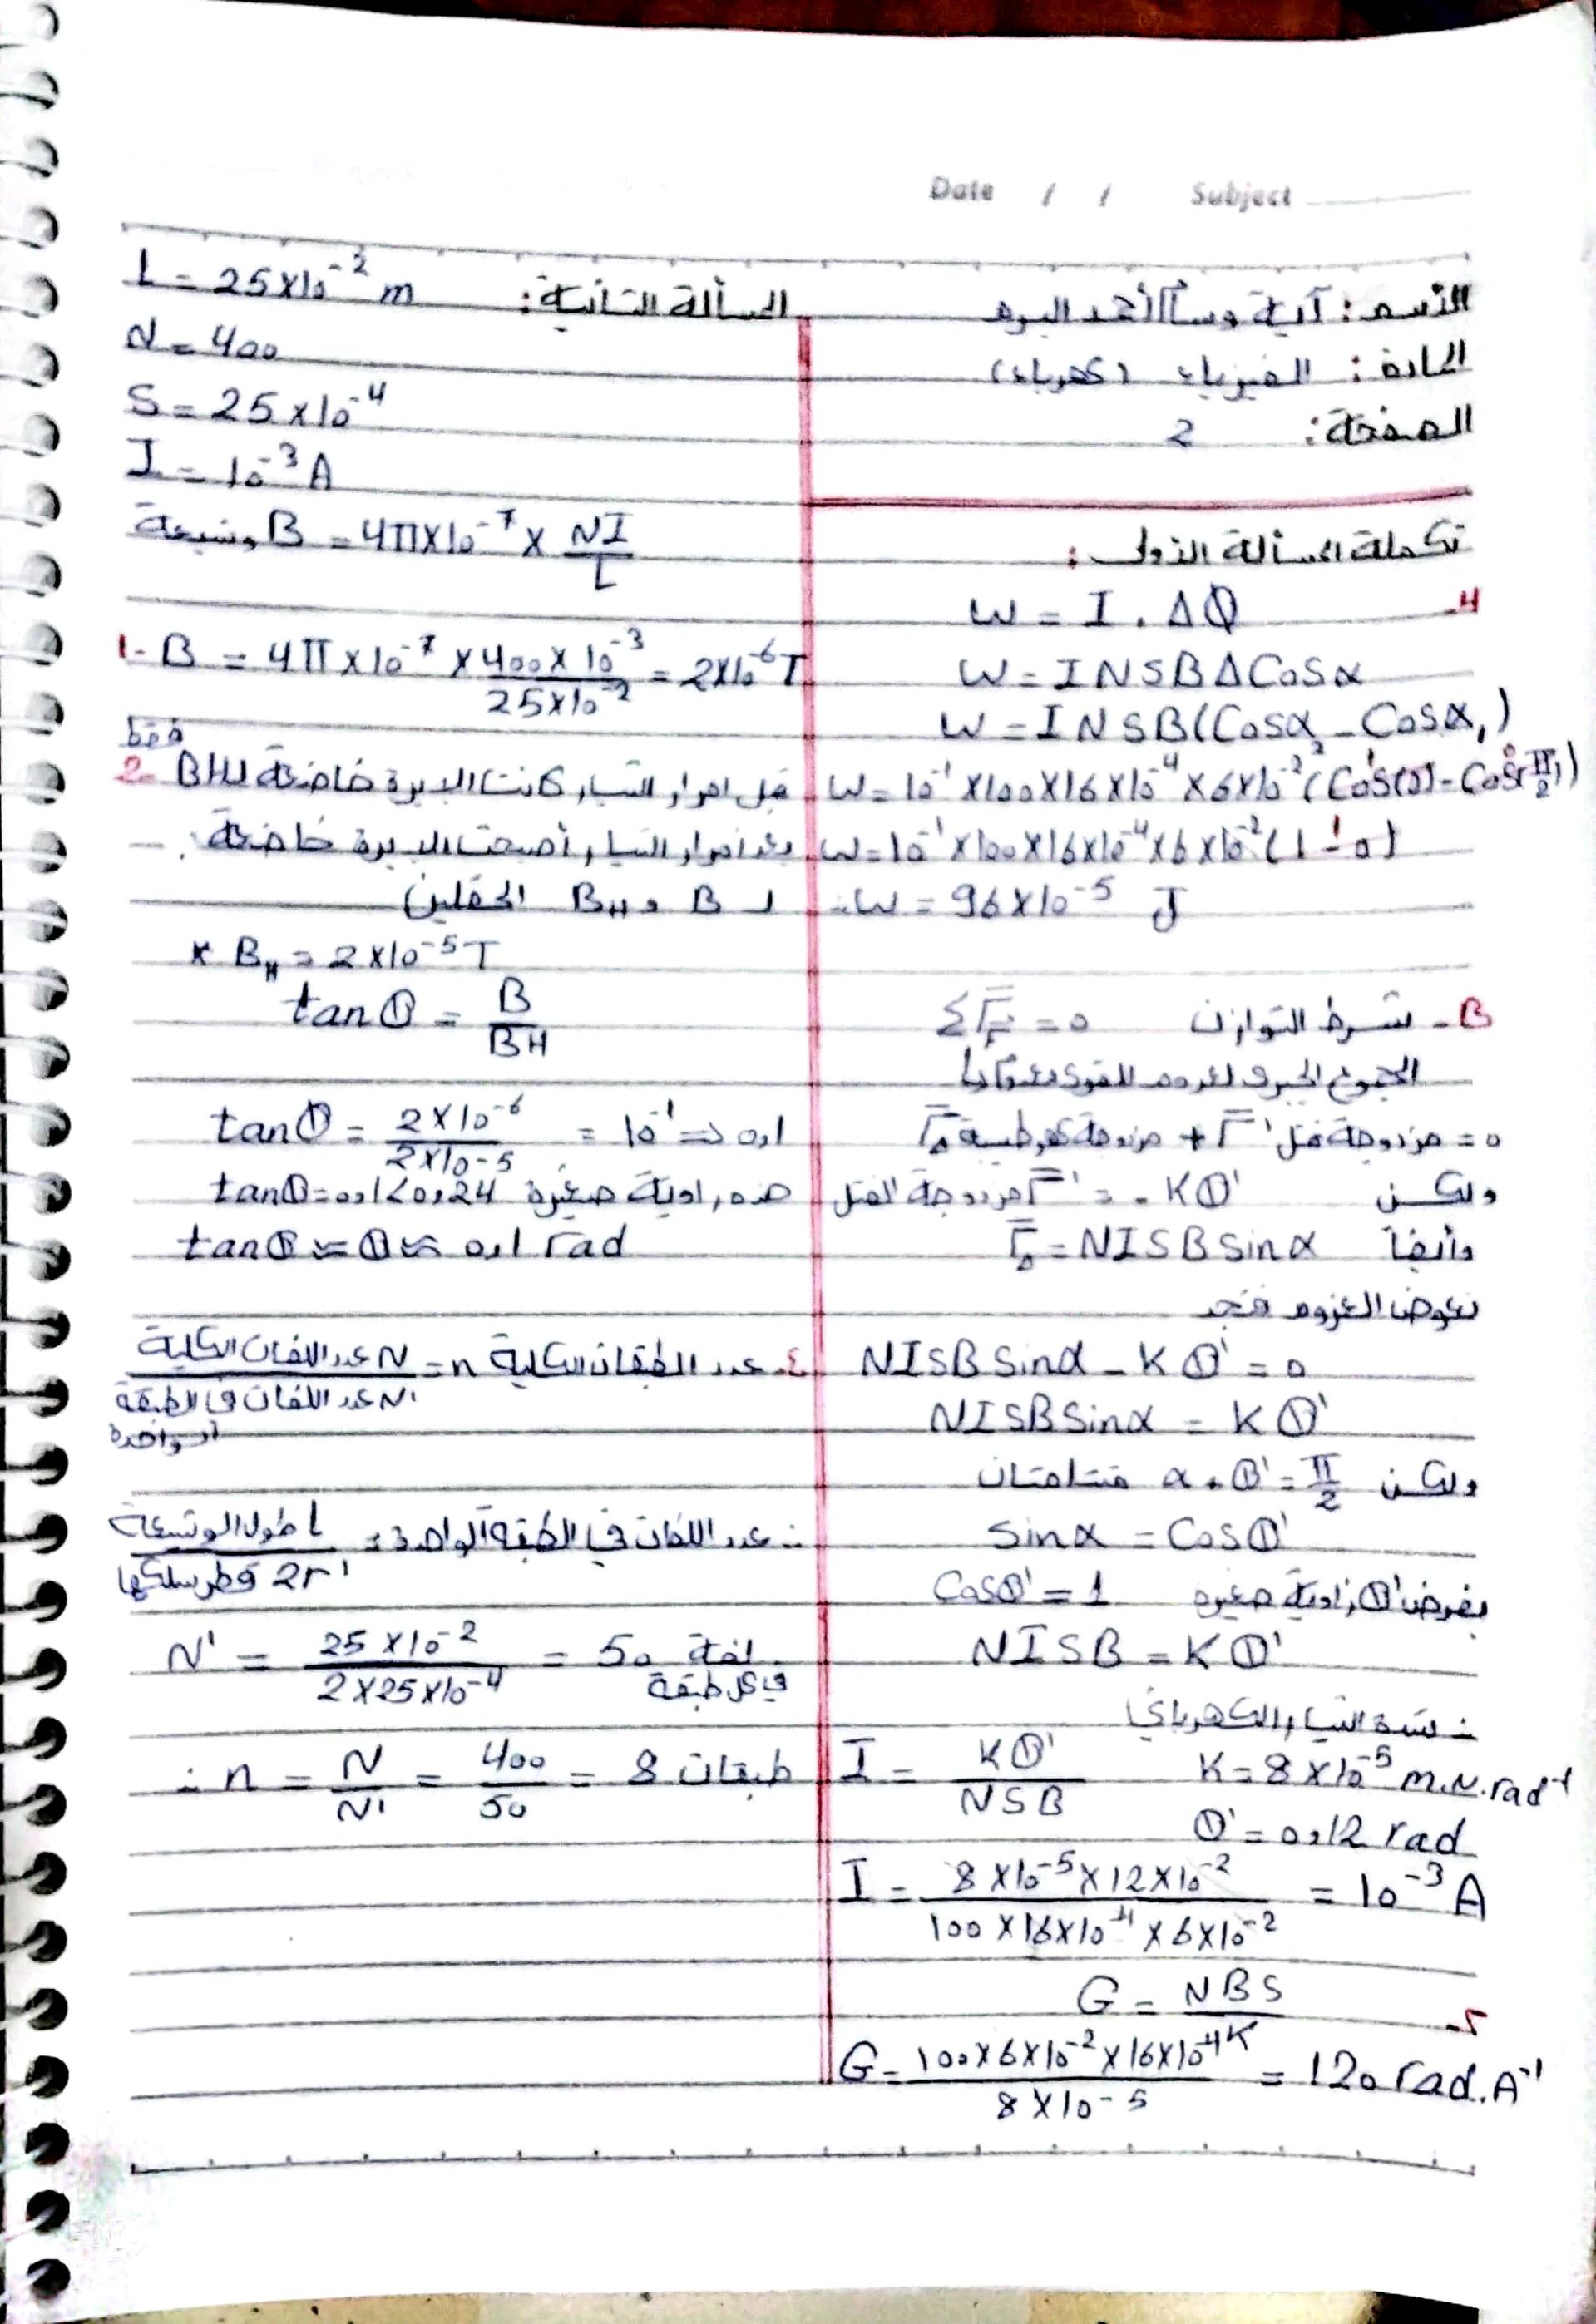 Date / / Subject
الأسم : آية وسام أحمد
المادة : الفيزياء (كهرباء)
الصفحة : 2
تكملة المسألة الأولى :
4-
W = I . ΔΦ
W = INSBΔCosα
W = INSB(Cosα₂ - Cosα₁)
W = 10⁻¹ × 100 × 16 × 10⁻⁴ × 6 × 10⁻² (Cos(0) - Cos(π/2))
W = 10⁻¹ × 100 × 16 × 10⁻⁴ × 6 × 10⁻² (1 - 0)
∴ W = 96 × 10⁻⁵ J
B- شرط التوازن ΣΓ̄ = 0
المجموع الجبري لعزوم القوى
مزدوجة فتل Γ̄' + مزدوجة كهرطيسية Γ̄Δ = 0
ولكن مزدوجة الفتل Γ̄' = - Kθ'
وأيضاً Γ̄Δ = NISBsinα
نعوض العزوم فنجد
NISBsinα - Kθ' = 0
NISBsinα = Kθ'
ولكن α + θ' = π/2 متتامتان
sinα = Cosθ'
بفرض θ' زاوية صغيرة Cosθ' = 1
NISB = Kθ'
∴ شدة التيار الكهربائي
I = Kθ' / NSB K = 8 × 10⁻⁵ m.N.rad⁻¹
θ' = 0,12 rad
I = 8 × 10⁻⁵ × 12 × 10⁻² / 100 × 16 × 10⁻⁴ × 6 × 10⁻² = 10⁻³ A
5- G = NBS / K
G = 100 × 6 × 10⁻² × 16 × 10⁻⁴ / 8 × 10⁻⁵ = 120 rad.A⁻¹
المسألة الثانية : L = 25 × 10⁻² m
N = 400
S = 25 × 10⁻⁴
I = 10⁻³ A
B وشيعة = 4π × 10⁻⁷ × NI / L
1- B = 4π × 10⁻⁷ × 400 × 10⁻³ / 25 × 10⁻² = 2 × 10⁻⁶ T
2- قبل امرار التيار كانت الابرة خاضعة لـ BH فقط
بعد امرار التيار أصبحت الابرة خاضعة
لـ B و BH الحقلين
* BH = 2 × 10⁻⁵ T
tanθ = B / BH
tanθ = 2 × 10⁻⁶ / 2 × 10⁻⁵ = 10⁻¹ => 0,1
هذه زاوية صغيرة tanθ = 0,1 < 0,24
tanθ ≈ θ ≈ 0,1 rad
4- عدد الطبقات الكلية n = N عدد اللفات الكلية / N' عدد اللفات في الطبقة الواحدة
∴ عدد اللفات في الطبقة الواحدة = L طول الوشيعة / 2r' قطر سلكها
N' = 25 × 10⁻² / 2 × 25 × 10⁻⁴ = 50 لفة في كل طبقة
∴ n = N / N' = 400 / 50 = 8 طبقات